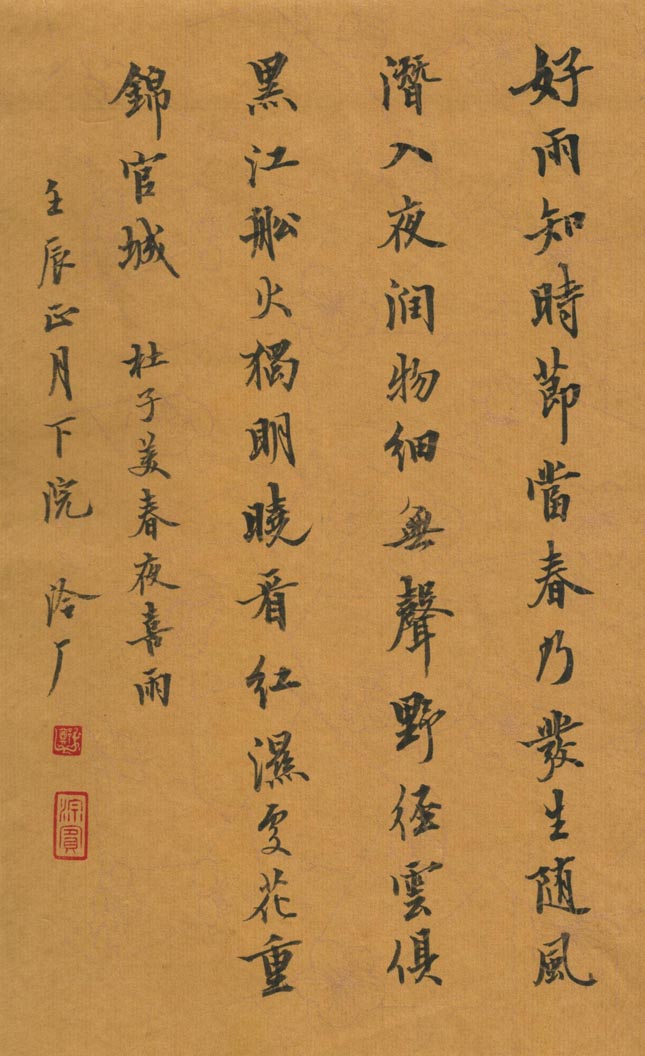 好雨知時節當春乃發生随風
潛入夜润物细無聲野徑雲俱
黑江船火獨明曉看红濕處花重
錦官城 杜子美春夜喜雨
壬辰正月下浣 泠厂